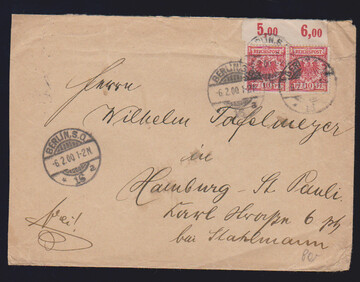 5,00 6,00
REICHSPOST REICHSPOST
BERLIN, S.O.
6.2.00.1-2N
Herrn
Wilhelm Tögelmeyer
BERLIN, S.O.
6.2.00.1-2N
* 16 a
in
Hamburg - St. Pauli
Karl Straße 6 ptr
bei Stahlmann
frei!